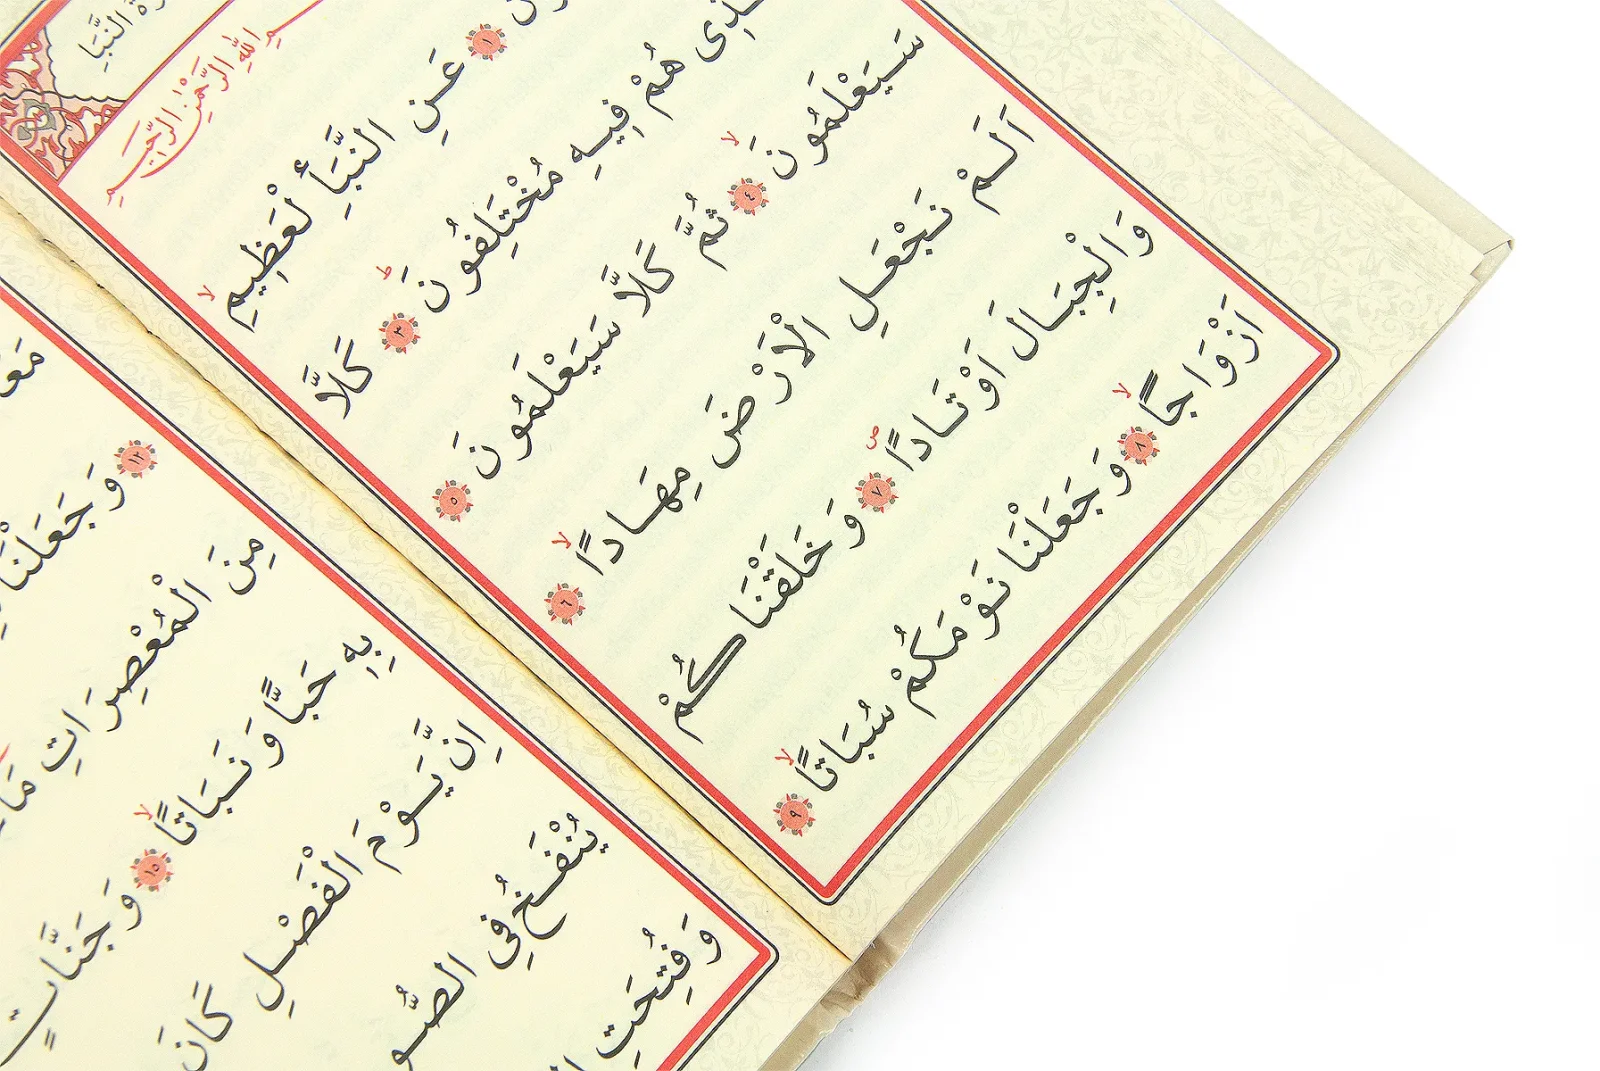 سُورَةُ النَّبَأِ
بِسْمِ اللّٰهِ الرَّحْمٰنِ الرَّحِيمِ
۝١ عَنِ النَّبَأِ الْعَظِيمِۙ
الَّذِى هُمْ فِيهِ مُخْتَلِفُونَۜ ۝٣ كَلَّا
سَيَعْلَمُونَۙ ۝٤ ثُمَّ كَلَّا سَيَعْلَمُونَ ۝٥
اَلَمْ نَجْعَلِ الْاَرْضَ مِهَادًاۙ ۝٦
وَالْجِبَالَ اَوْتَادًاۖ ۝٧ وَخَلَقْنَاكُمْ
اَزْوَاجًاۙ ۝٨ وَجَعَلْنَا نَوْمَكُمْ سُبَاتًاۙ ۝٩
۝١٢ وَجَعَلْنَا
مِنَ الْمُعْصِرَاتِ
بِهِ حَبًّا وَنَبَاتًاۙ ۝١٥ وَجَنَّاتٍ
اِنَّ يَوْمَ الْفَصْلِ كَانَ
يُنْفَخُ فِى الصُّو
وَفُتِحَتِ